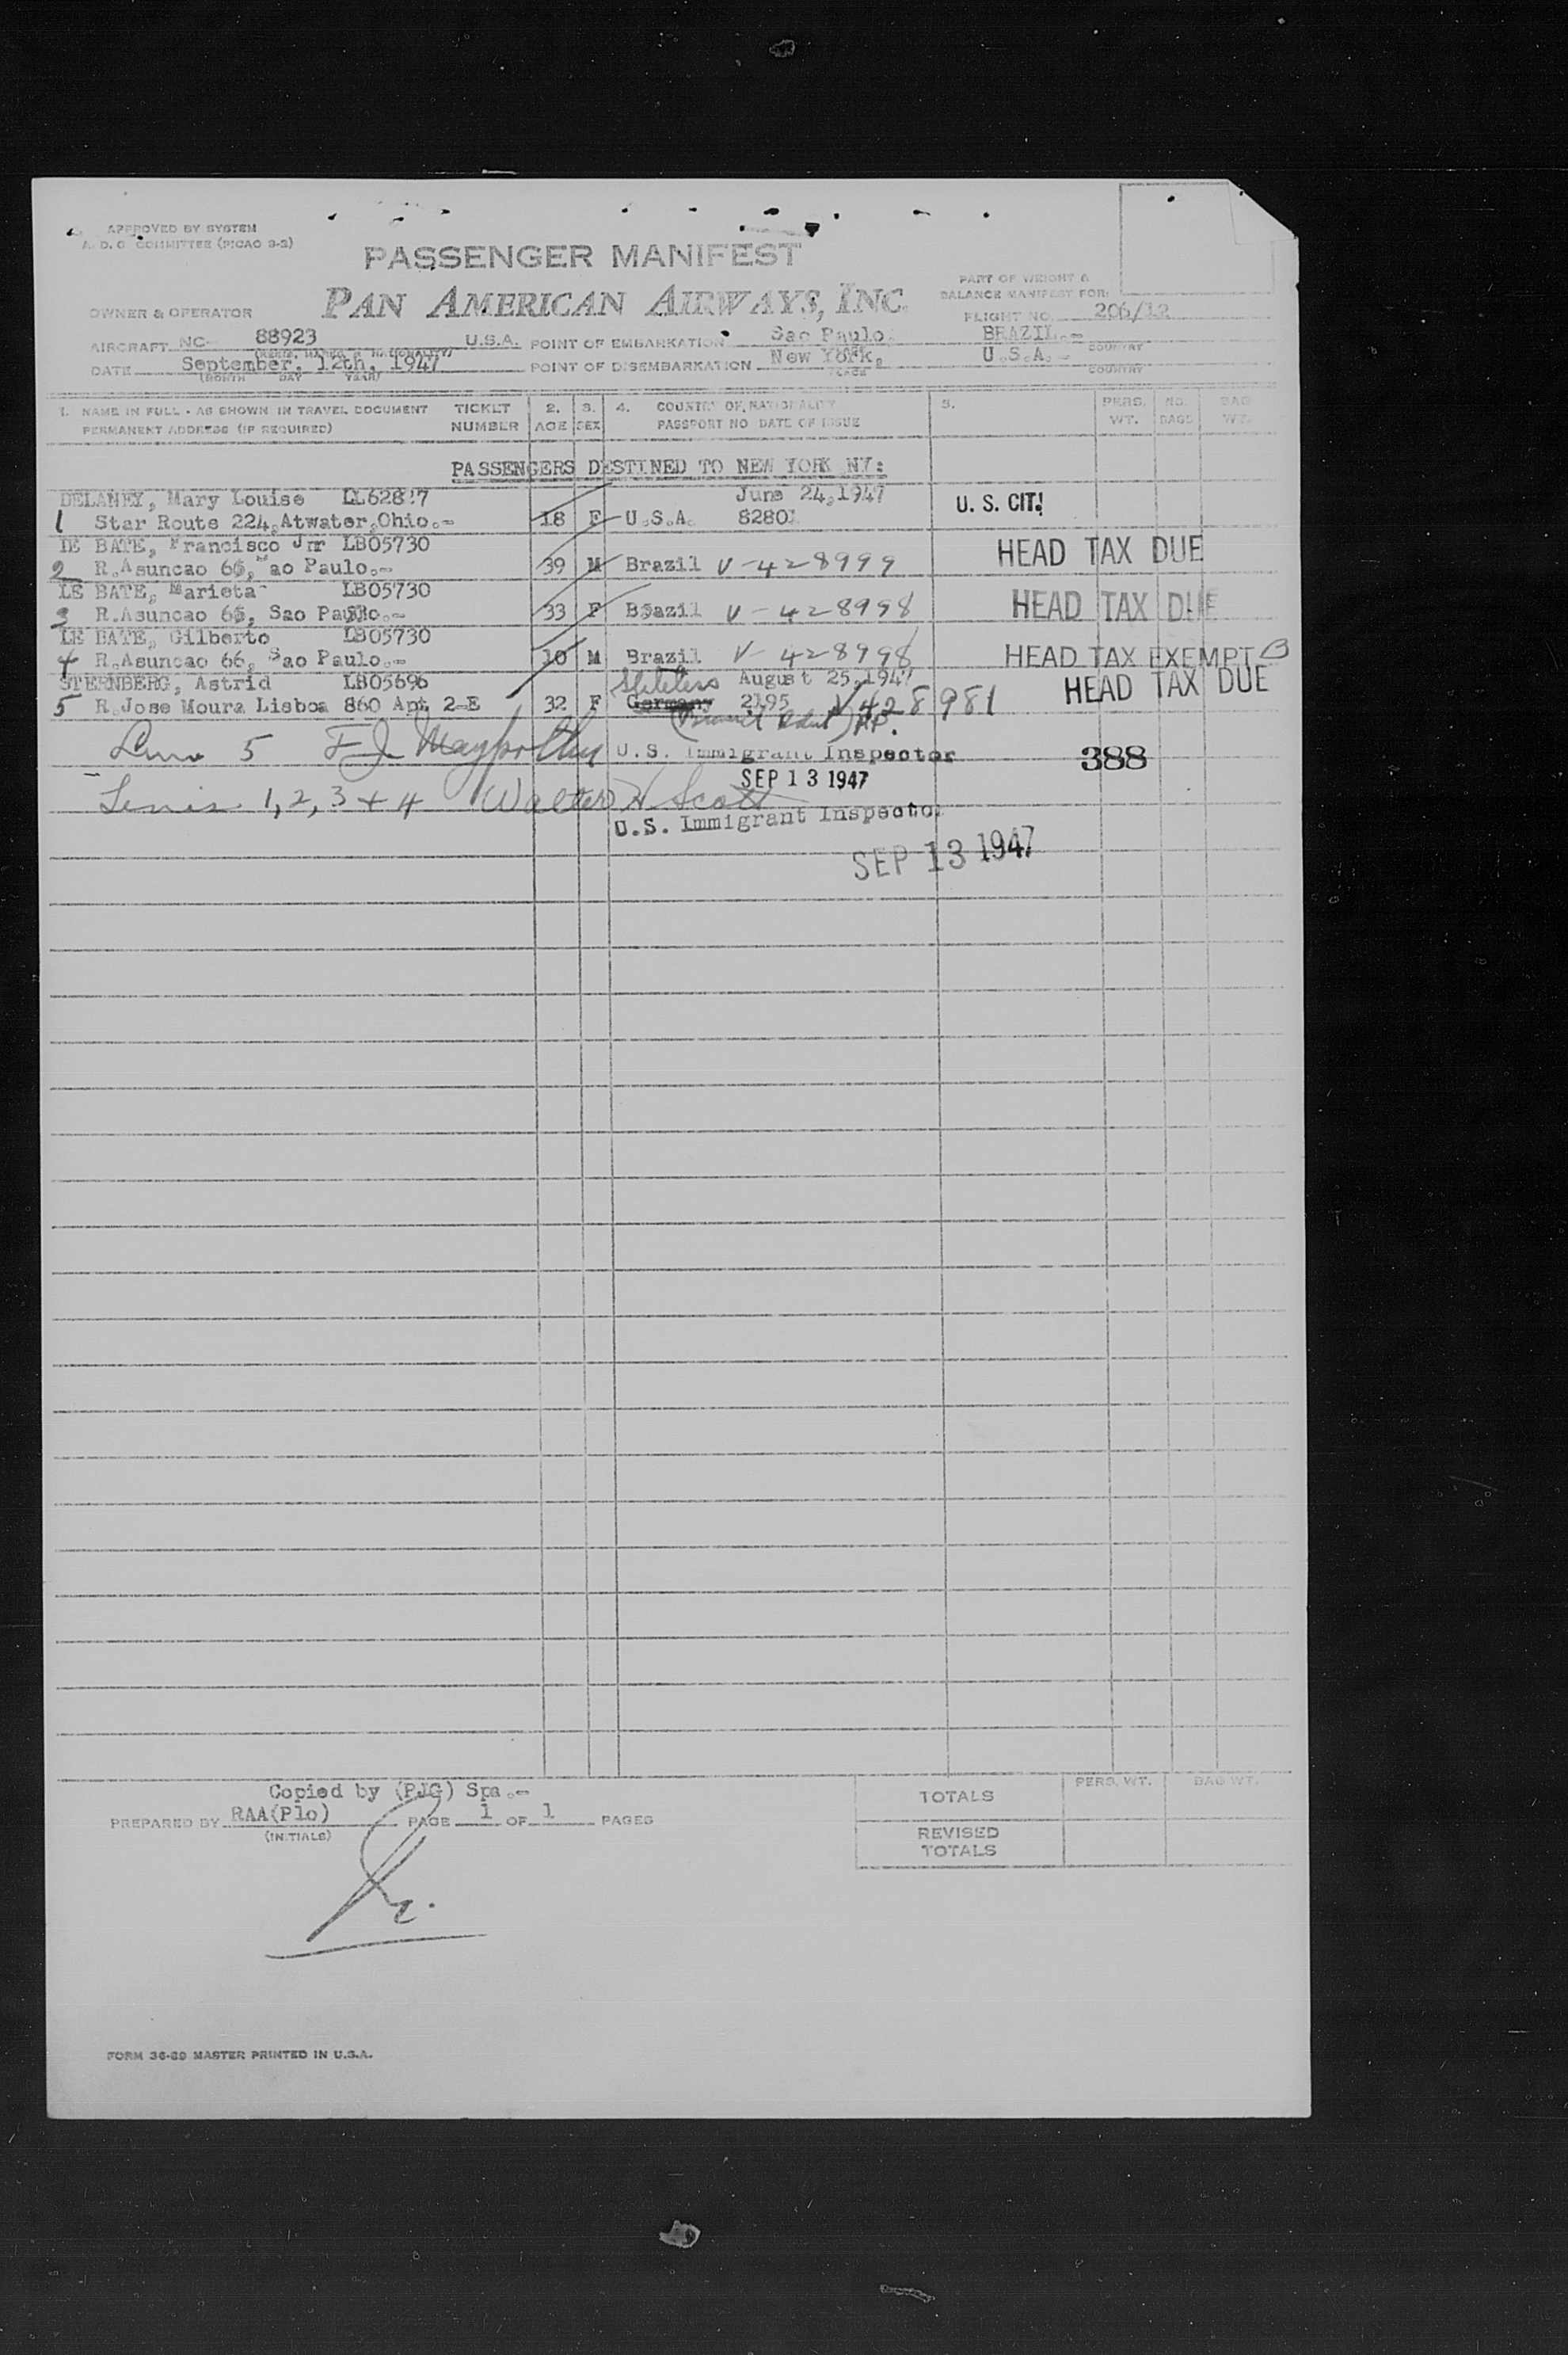 APPROVED BY SYSTEM
A. D. C. COMMITTEE (PICAO 8-2)
PASSENGER MANIFEST
PAN AMERICAN AIRWAYS, INC.
PART OF WEIGHT &
BALANCE MANIFEST FOR:
OWNER & OPERATOR
FLIGHT NO. 206/12
AIRCRAFT NC- 88923 U.S.A. POINT OF EMBARKATION Sao Paulo. BRAZIL.-
COUNTRY
DATE September, 12th, 1947 POINT OF DISEMBARKATION New York, U.S.A.-
(MONTH DAY YEAR) PLACE COUNTRY
1. NAME IN FULL - AS SHOWN IN TRAVEL DOCUMENT TICKET 2. 3. 4. COUNTRY OF NATIONALITY 5. PERS. NO. BAG
PERMANENT ADDRESS (IF REQUIRED) NUMBER AGE SEX PASSPORT NO DATE OF ISSUE WT. BAGS WT.
PASSENGERS DESTINED TO NEW YORK NY:
DELANEY, Mary Louise June 24,1947
1 Star Route 224,Atwater,Ohio.- 18 F U.S.A. U. S. CIT.
DE BATE, Francisco Jnr LB05730
2 R.Asuncao 66, Sao Paulo.- 39 M Brazil V-428999 HEAD TAX DUE
LE BATE, Marieta LB05730
3 R.Asuncao 66, Sao Paulo.- 33 F Brazil V-428998 HEAD TAX DUE
LE BATE, Gilberto LB05730
4 R.Asuncao 66, Sao Paulo.- 10 M Brazil V-428998 HEAD TAX EXEMPT
STERNBERG, Astrid LB05696 Stateless August 25,1947
5 R.Jose Moura Lisboa 860 Apt 2-E 32 F Germany 2195 V428981 HEAD TAX DUE
Line 5 U.S. Immigrant Inspector 388
SEP 13 1947
Lines 1, 2, 3 + 4 Walter H Scott
U.S. Immigrant Inspector
SEP 13 1947
Copied by (PJG) Spa.-
PREPARED BY RAA(Plo) PAGE 1 OF 1 PAGES
(INITIALS)
PERS. WT. BAG WT.
TOTALS
REVISED
TOTALS
FORM 36-89 MASTER PRINTED IN U.S.A.